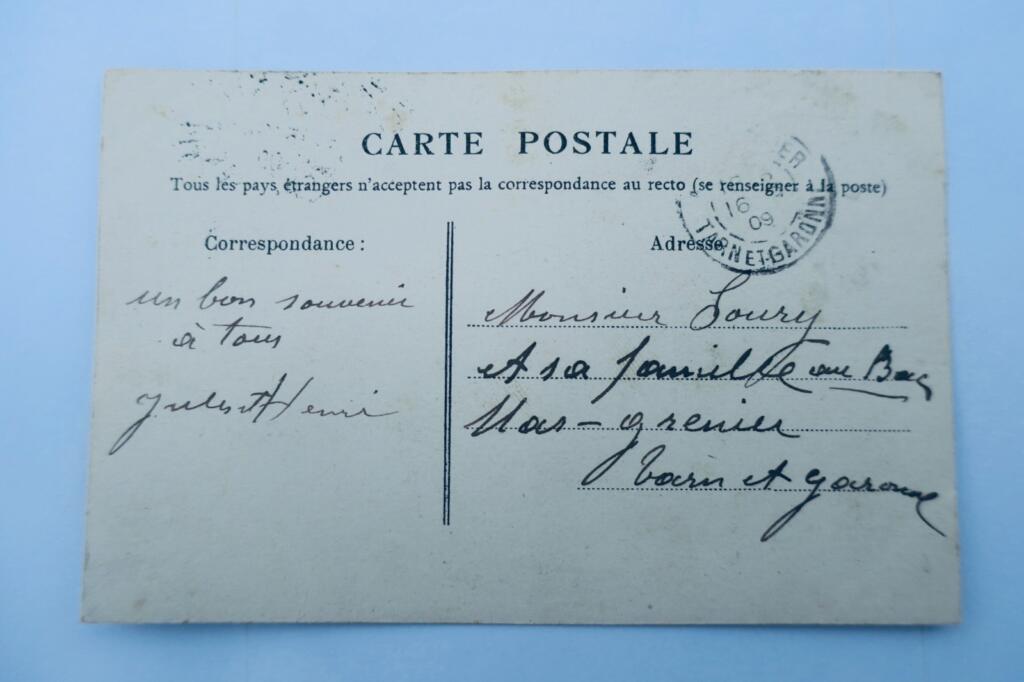 CARTE POSTALE
Tous les pays étrangers n'acceptent pas la correspondance au recto (se renseigner à la poste)
Correspondance :
un bon souvenir
à tous
Jules et Henri
Adresse
Monsieur Soury
et sa famille au Bac
Mas-grenier
Tarn et garonne
16
09
TARN-ET-GARONNE